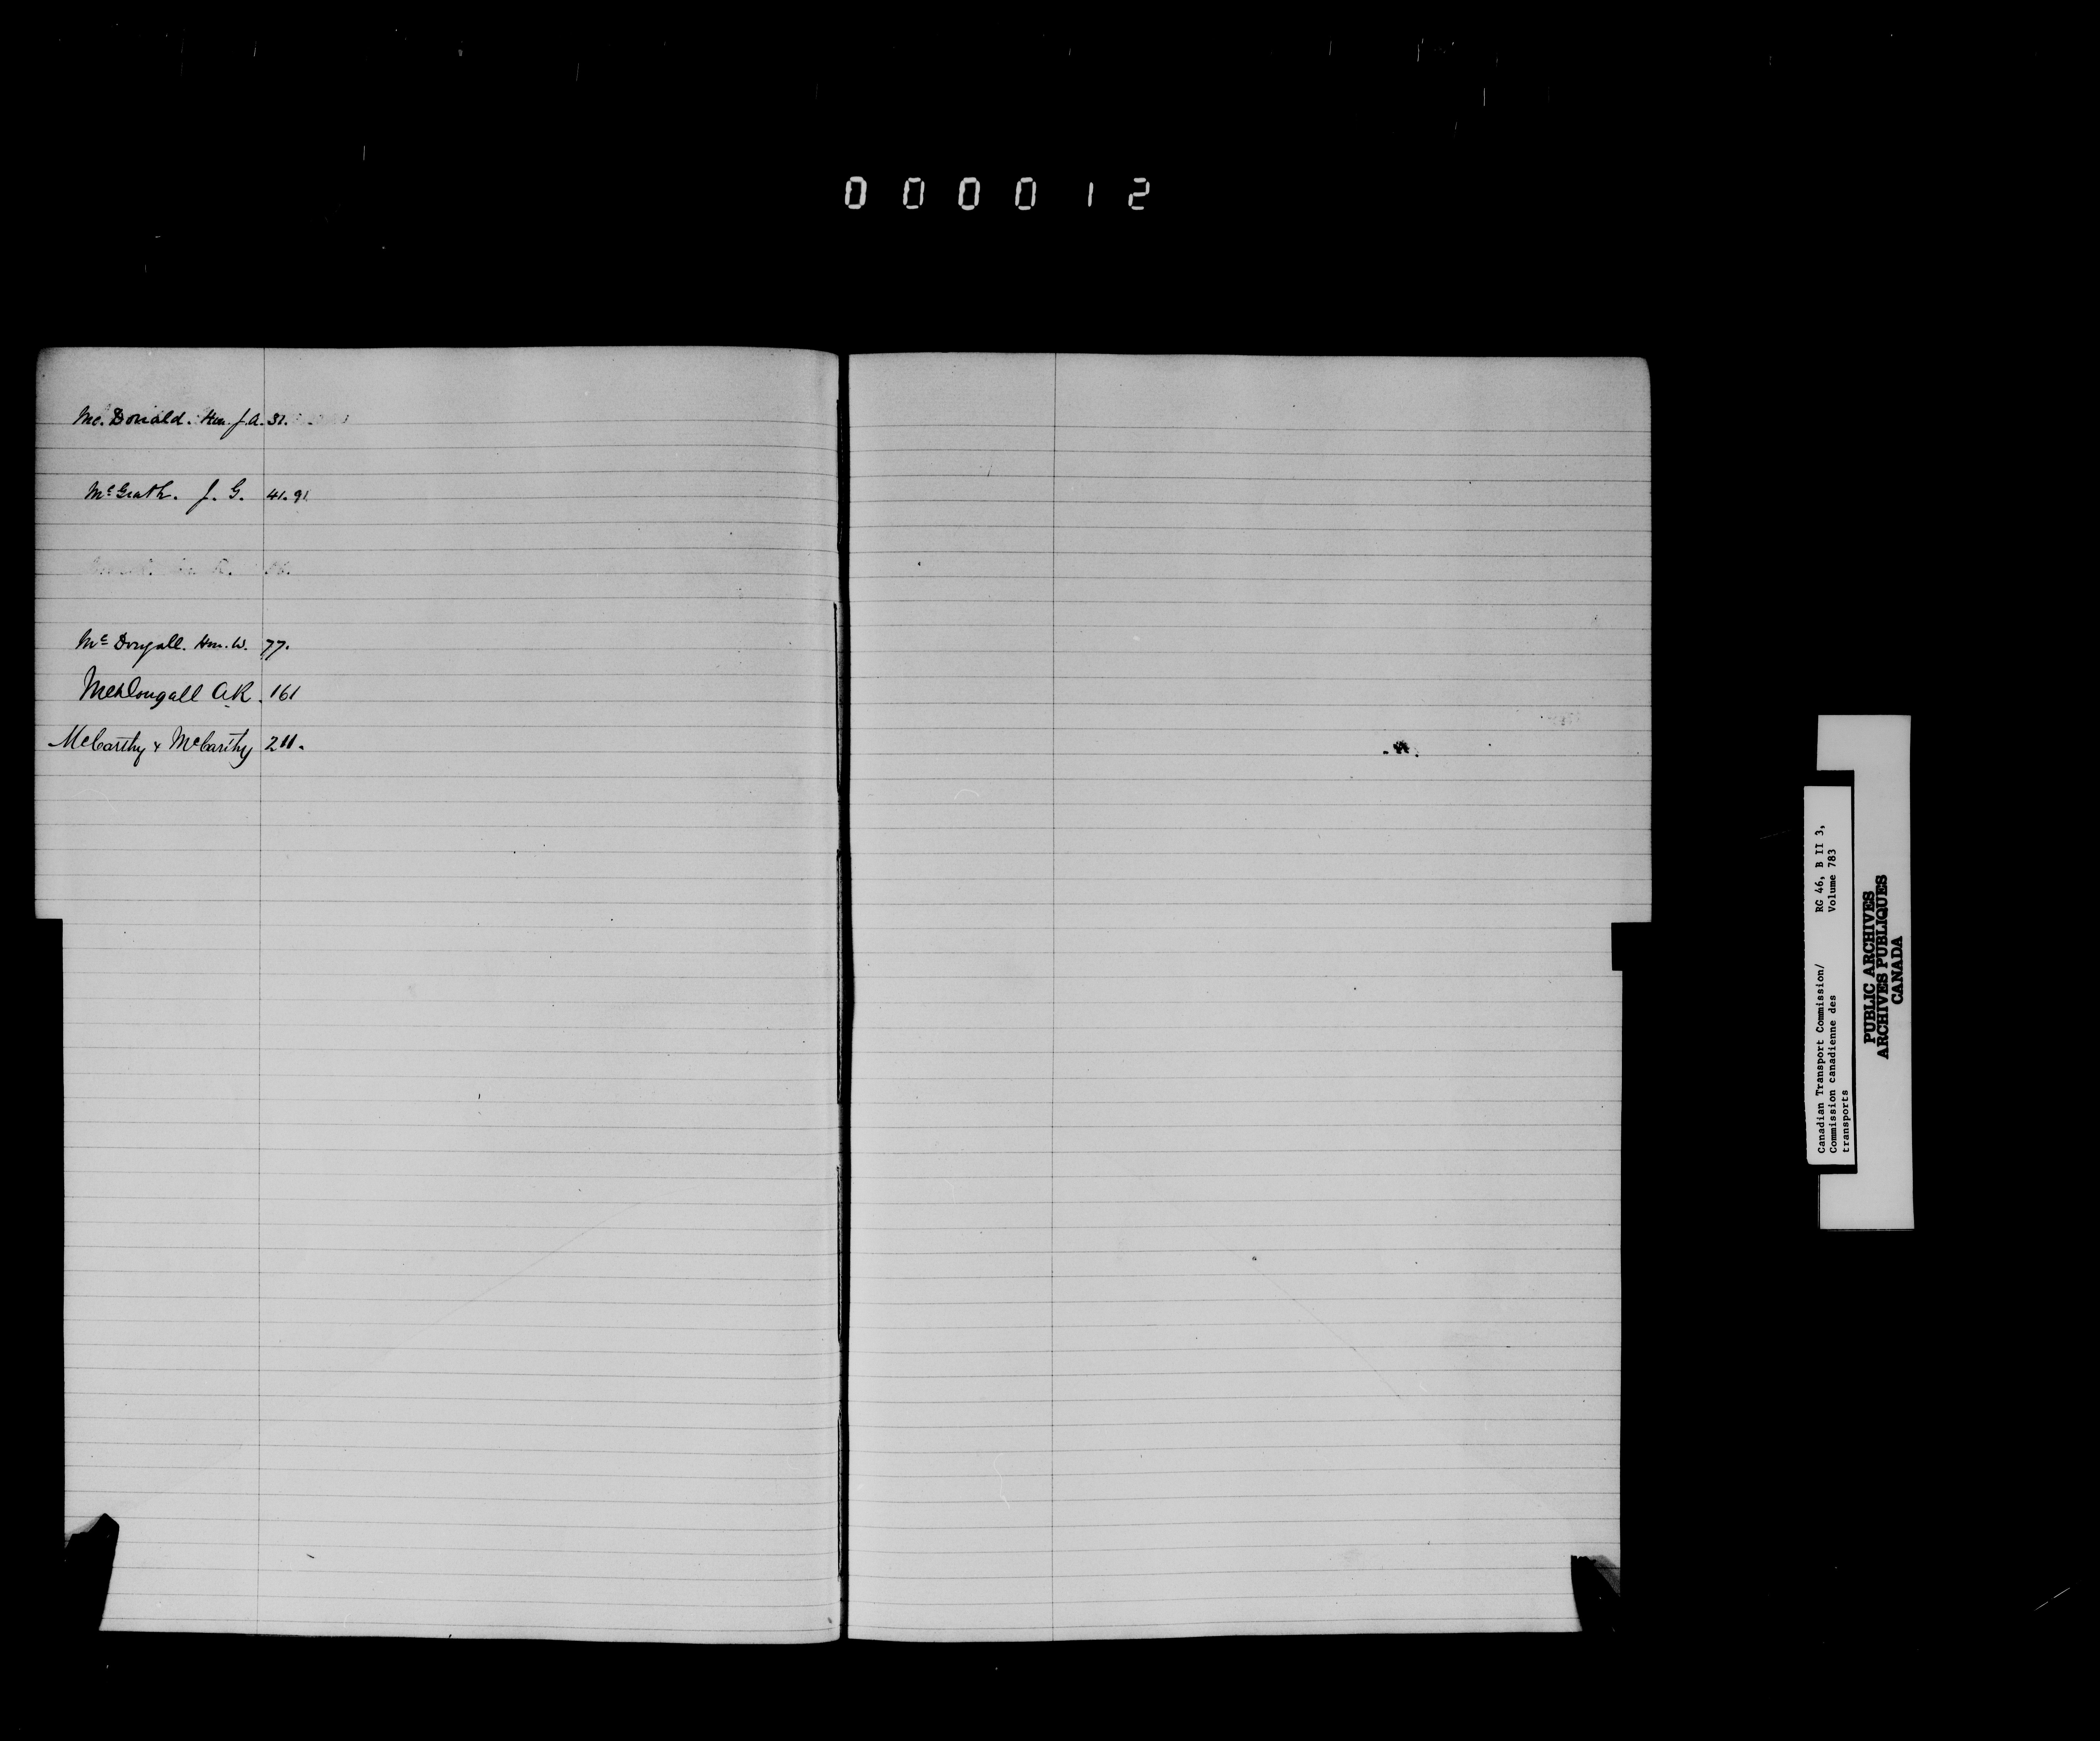 000012
Mc. Donald. Hon. J. A. 31.
McGrath. J. G. 41. 91
Mc Dougall. Hon. W. 77.
McDougall A.R. 161
McCarthy & McCarthy 211.
Canadian Transport Commission/ RG 46, B II 3,
Commission canadienne des Volume 783
transports
PUBLIC ARCHIVES
ARCHIVES PUBLIQUES
CANADA